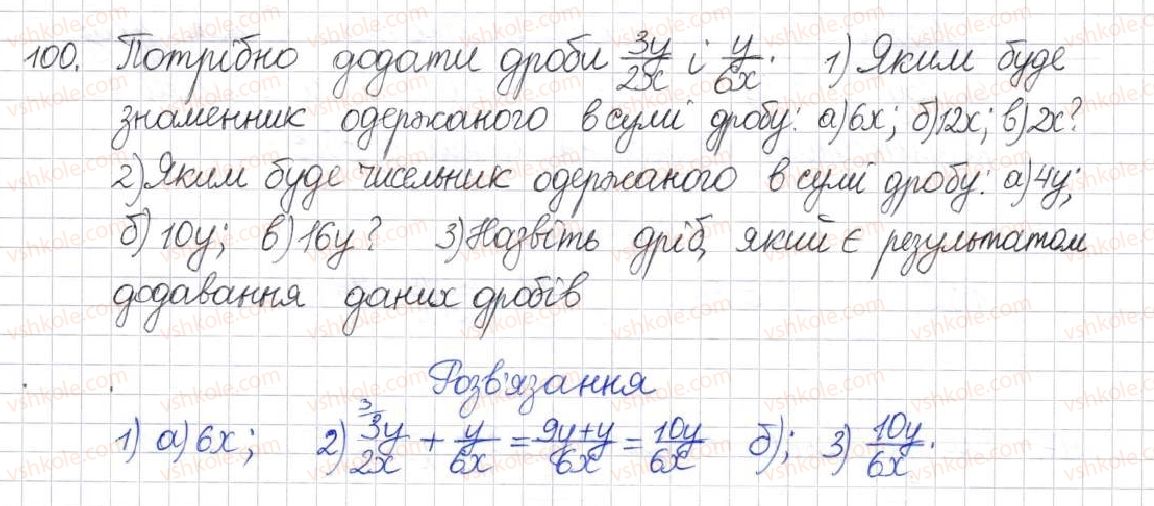 100. Потрібно додати дроби 3y/2x і y/6x. 1) Яким буде
знаменник одержаного в сумі дробу: а) 6x; б) 12x; в) 2x?
2) Яким буде чисельник одержаного в сумі дробу: а) 4y;
б) 10y; в) 16y? 3) Назвіть дріб, який є результатом
додавання даних дробів
Розв'язання
1) а) 6x; 2) ³⁄3y/2x + y/6x = 9y+y/6x = 10y/6x б); 3) 10y/6x.